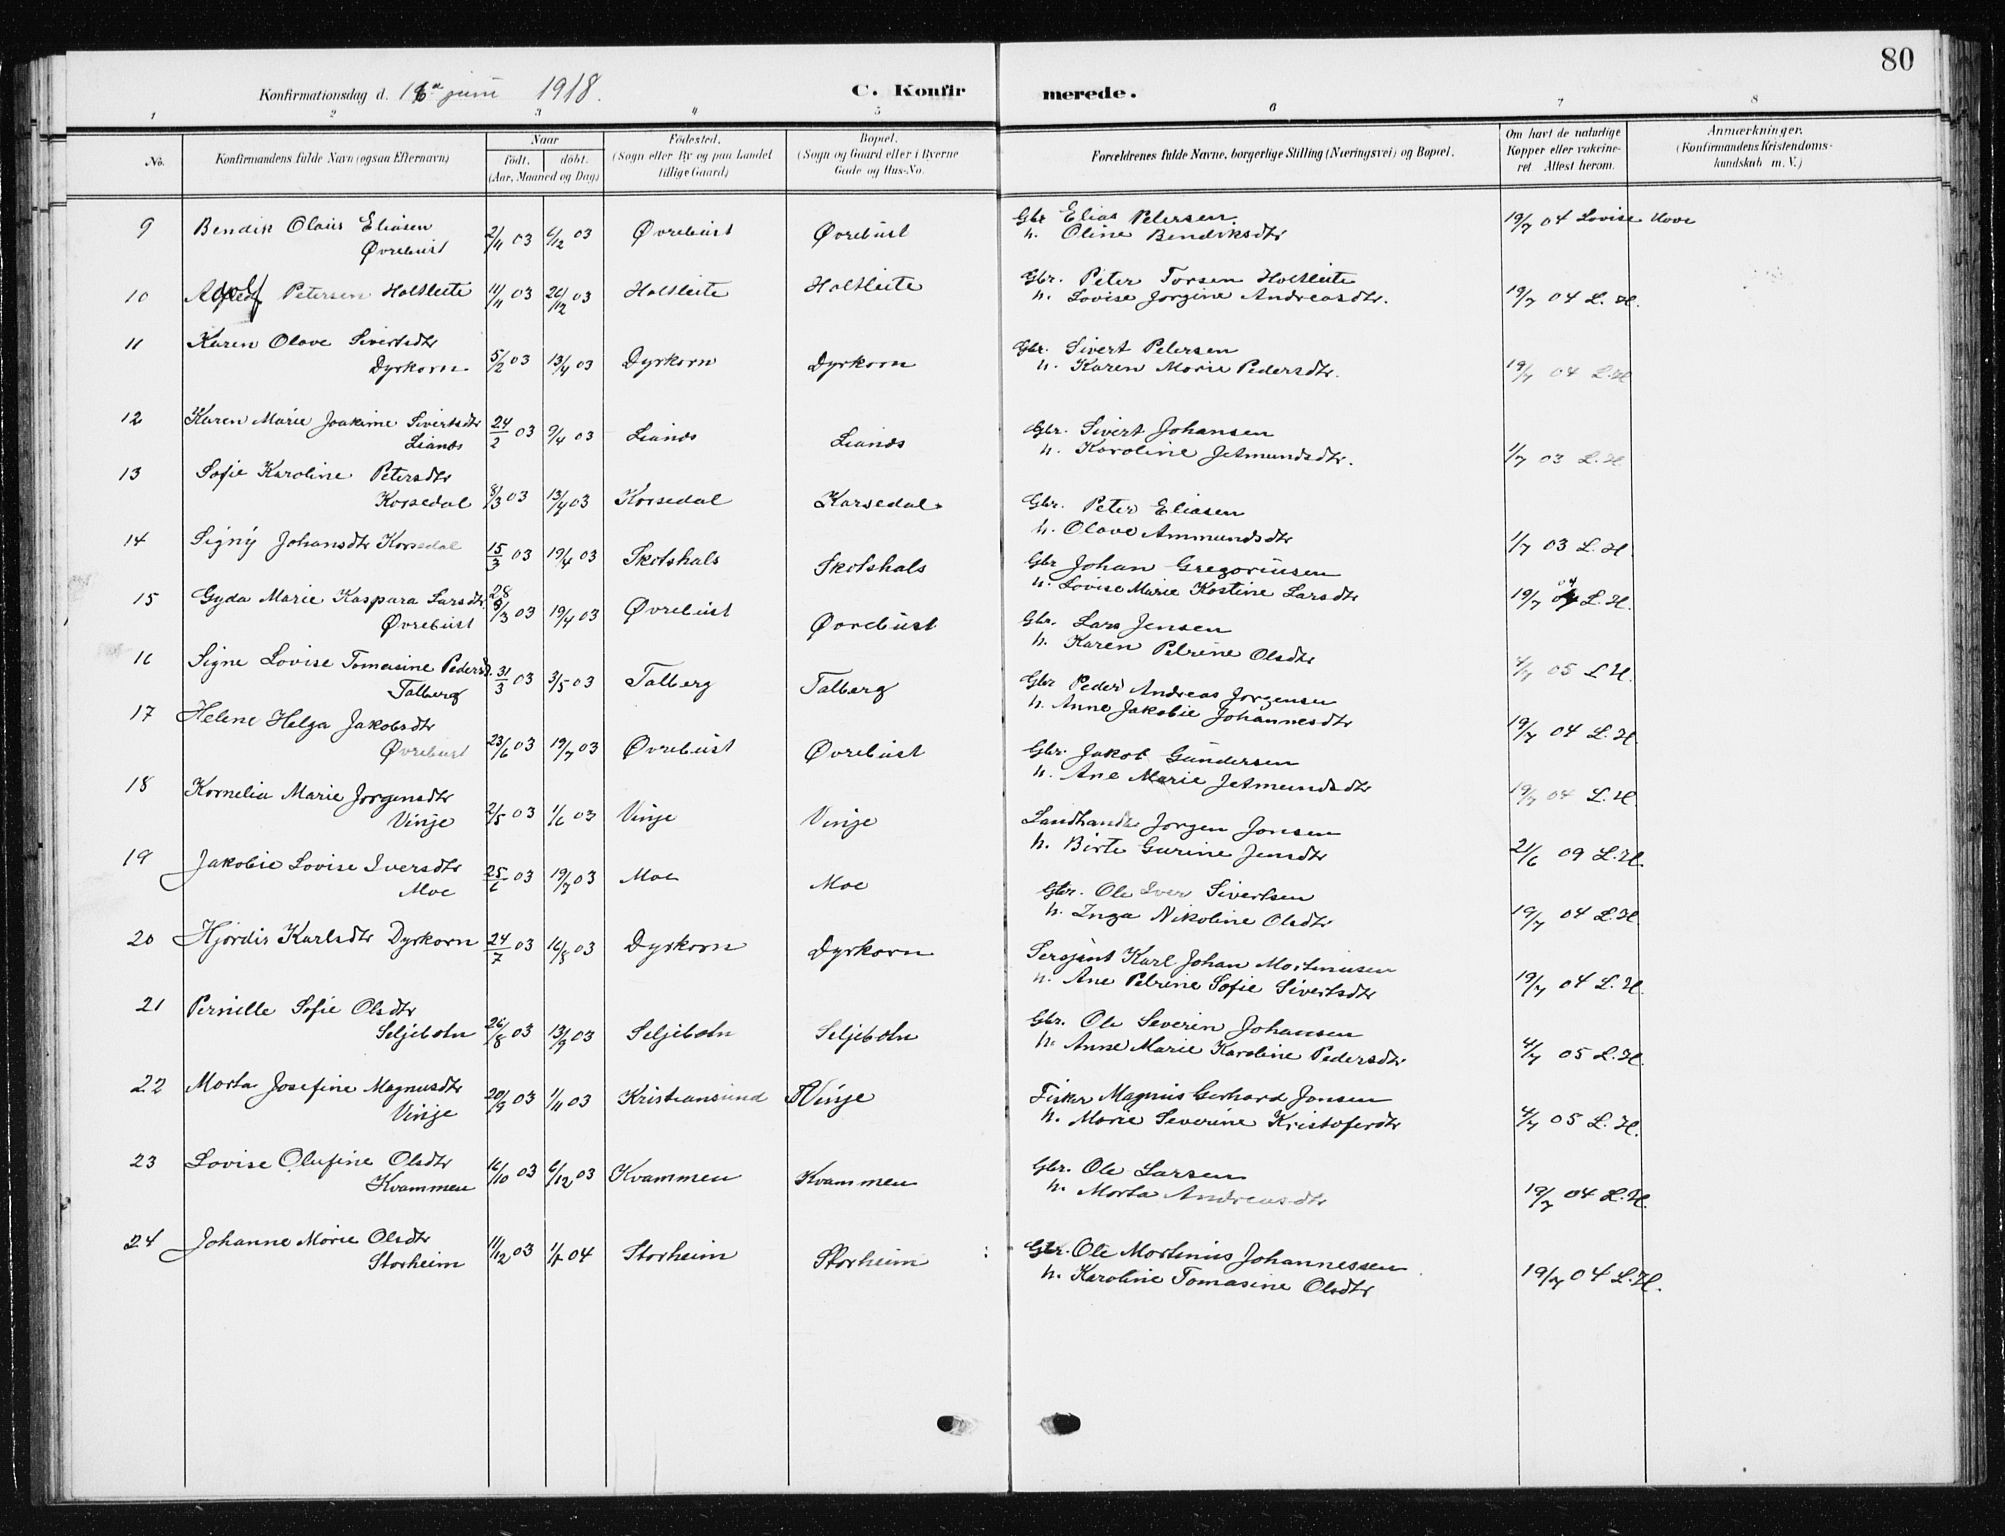 80
Konfirmationsdag d. 16de juni 1918. C. Konfirmerede.
1 2 3 4 5 6 7 8
No. Konfirmandens fulde Navn (ogsaa Efternavn) Naar født, døbt. (Aar, Maaned og Dag) Fødested. (Sogn eller By og paa Landet tillige Gaard) Bopæl. (Sogn og Gaard eller i Byerne Gade og Hus-No. Forældrenes fulde Navne, borgerlige Stilling (Næringsvei) og Bopæl. Om havt de naturlige Kopper eller vakcineret. Attest herom. Anmærkninger. (Konfirmandens Kristendomskundskab m. V.)
9 Bendik Olaus Eliasen 2/11 03 6/12 03 Øvrebust Øvrebust Gbr Elias Petersen 19/7 04 Lovise Hove
Øvrebust h. Oline Bendiksdtr
10 Adolf Petersen Holtleite 11/11 03 20/12 03 Holtleite Holtleite Gbr. Peter Torsen Holtleite 19/7 04 L. H.
h. Lovise Jørgine Andreasdtr.
11 Karen Olave Sivertsdtr Gbr. Sivert Petersen
Dyrkorn 5/2 03 13/4 03 Dyrkorn Dyrkorn h. Karen Marie Pedersdtr. 19/7 04 L.H
12 Karen Marie Joakime Sivertsdtr 24/2 03 9/4 03 Lianes Lianes Gbr. Sivert Johansen
Lianes h. Karoline Jetmundsdtr. 1/7 03 L.H
13 Sofie Karoline Petersdtr
Korsedal 8/3 03 13/4 03 Korsedal Korsedal Gbr. Peter Eliasen
h. Olave Ammundsdtr 1/7 03 L. H
14 Signy Johansdtr Korsedal 15/3 03 19/4 03 Skotshals Skotshals Gbr Johan Gregoriusen
h. Lovise Marie Kostine Larsdtr 19/7 04 L. H.
15 Gyda Marie Kaspara Larsdtr 28/3 03 19/4 03 Øvrebust Øvrebust Gbr. Lars Jensen
Øvrebust h. Karen Petrine Olsdtr 4/7 05 L H.
16 Signe Lovise Tomasine Pedersdtr. 31/3 03 3/5 03 Talberg Talberg Gbr Peder Andreas Jørgensen
Talberg h. Anne Jakobie Johannesdtr 19/7 04 L. H.
17 Helene Helga Jakobsdtr
Øvrebust 23/6 03 19/7 03 Øvrebust Øvrebust Gbr. Jakob Gundersen
h. Ane Marie Jetmundsdtr 19/7 04 L.H
18 Kornelia Marie Jørgensdtr
Vinje 2/5 03 1/6 03 Vinje Vinje Landhandr Jørgen Jonsen
h. Birte Gurine Jensdtr 21/6 09 L.H.
19 Jakobie Lovise Iversdtr 25/6 03 19/7 03 Moe Moe Gbr. Ole Iver Sivertsen
Moe h. Inga Nikoline Olsdtr 19/7 04 L.H.
20 Hjørdis Karlsdtr Dyrkorn 24/7 03 16/8 03 Dyrkorn Dyrkorn Sersjant Karl Johan Martinusen
h. Ane Petrine Sofie Sivertsdtr 19/7 04 L. H.
21 Pernille Sofie Olsdtr Gbr. Ole Severin Johansen
Seljebotn 26/8 03 13/9 03 Seljebotn Seljebotn h. Anne Marie Karoline Pedersdtr 4/7 05 L. H.
22 Marta Josefine Magnusdtr 20/9 03 1/11 03 Kristiansund Vinje Fisker Magnus Gerhard Jonsen
Vinje h. Marie Severine Kristoferdtr 4/7 05 L. H.
23 Lovise Olufine Olsdtr 16/10 03 6/12 03 Kvammen Kvammen Gbr. Ole Larsen
Kvammen h. Marta Andreasdtr 19/7 04 L.H.
24 Johanne Marie Olsdtr 11/12 03 04 Storheim Storheim Gbr. Ole Martinius Johannessen
Storheim h. Karoline Tomasine Olsdtr 19/7 04 L.H.